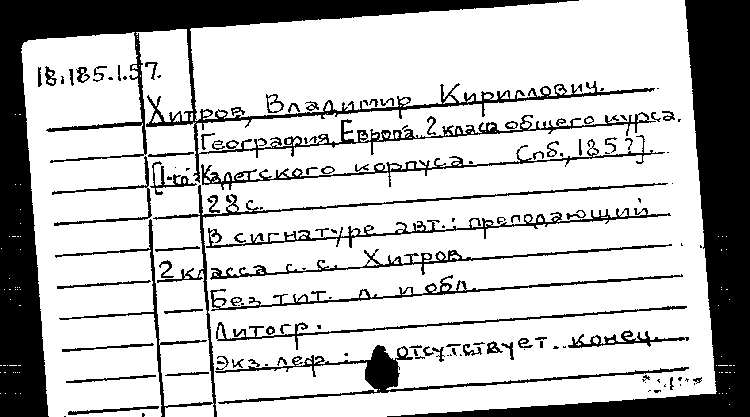 18.185.1.57.
Хитров, Владимир Кириллович.
География, Европа 2 класса общего курса.
[1-го Кадетского корпуса. Спб., 185?].
28 с.
В сигнатуре авт.: преподающий
2 класса с. с. Хитров.
Без тит. л. и обл.
Литогр.
Экз. деф.: отсутствует конец.